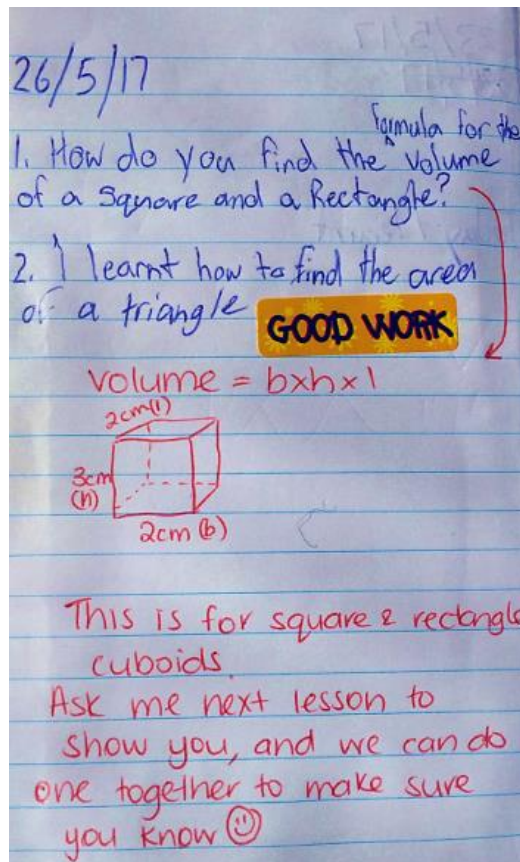 26/5/17
formula for the
1. How do you find the ^ volume
of a Square and a Rectangle?
2. I learnt how to find the area
of a triangle
GOOD WORK
Volume = b×h×l
2cm(l)
3cm
(h)
2cm (b)
This is for square & rectangle
cuboids.
Ask me next lesson to
show you, and we can do
one together to make sure
you know ☺